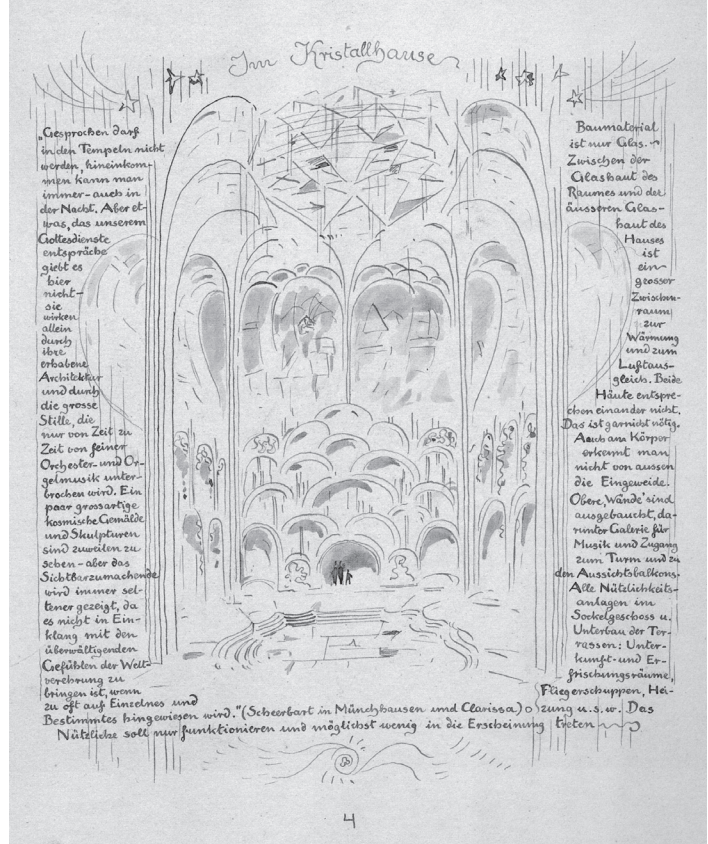 Im Kristallhause
„Gesprochen darf
in den Tempeln nicht
werden, hineinkom-
men kann man
immer - auch in
der Nacht. Aber et-
was, das unserem
Gottesdienste
entspräche
giebt es
hier
nicht -
sie
wirken
allein
durch
ihre
erhabene
Architektur
und durch
die grosse
Stille, die
nur von Zeit zu
Zeit von feiner
Orchester- und Or-
gelmusik unter-
brochen wird. Ein
paar grossartige
kosmische Gemälde
und Skulpturen
sind zuweilen zu
sehen - aber das
Sichtbarzumachende
wird immer sel-
tener gezeigt, da
es nicht in Ein-
klang mit den
überwältigenden
Gefühlen der Welt-
verehrung zu
bringen ist, wenn
zu oft auf Einzelnes und
Bestimmtes hingewiesen wird." (Scheerbart in Münchhausen und Clarissa)
Baumaterial
ist nur Glas.
Zwischen der
Glashaut des
Raumes und der
äusseren Glas-
haut des
Hauses
ist
ein
grosser
Zwischen-
raum
zur
Wärmung
und zum
Luftaus-
gleich. Beide
Häute entspre-
chen einander nicht.
Das ist garnicht nötig.
Auch am Körper
erkennt man
nicht von aussen
die Eingeweide.
Obere ‚Wände' sind
ausgebaucht, da-
runter Galerie für
Musik und Zugang
zum Turm und zu
den Aussichtsbalkons.
Alle Nützlichkeits-
anlagen im
Sockelgeschoss u.
Unterbau der Ter-
rassen: Unter-
kunft- und Er-
frischungsräume,
Fliegerschuppen, Hei-
zung u.s.w. Das
Nützliche soll nur funktionieren und möglichst wenig in die Erscheinung treten
4